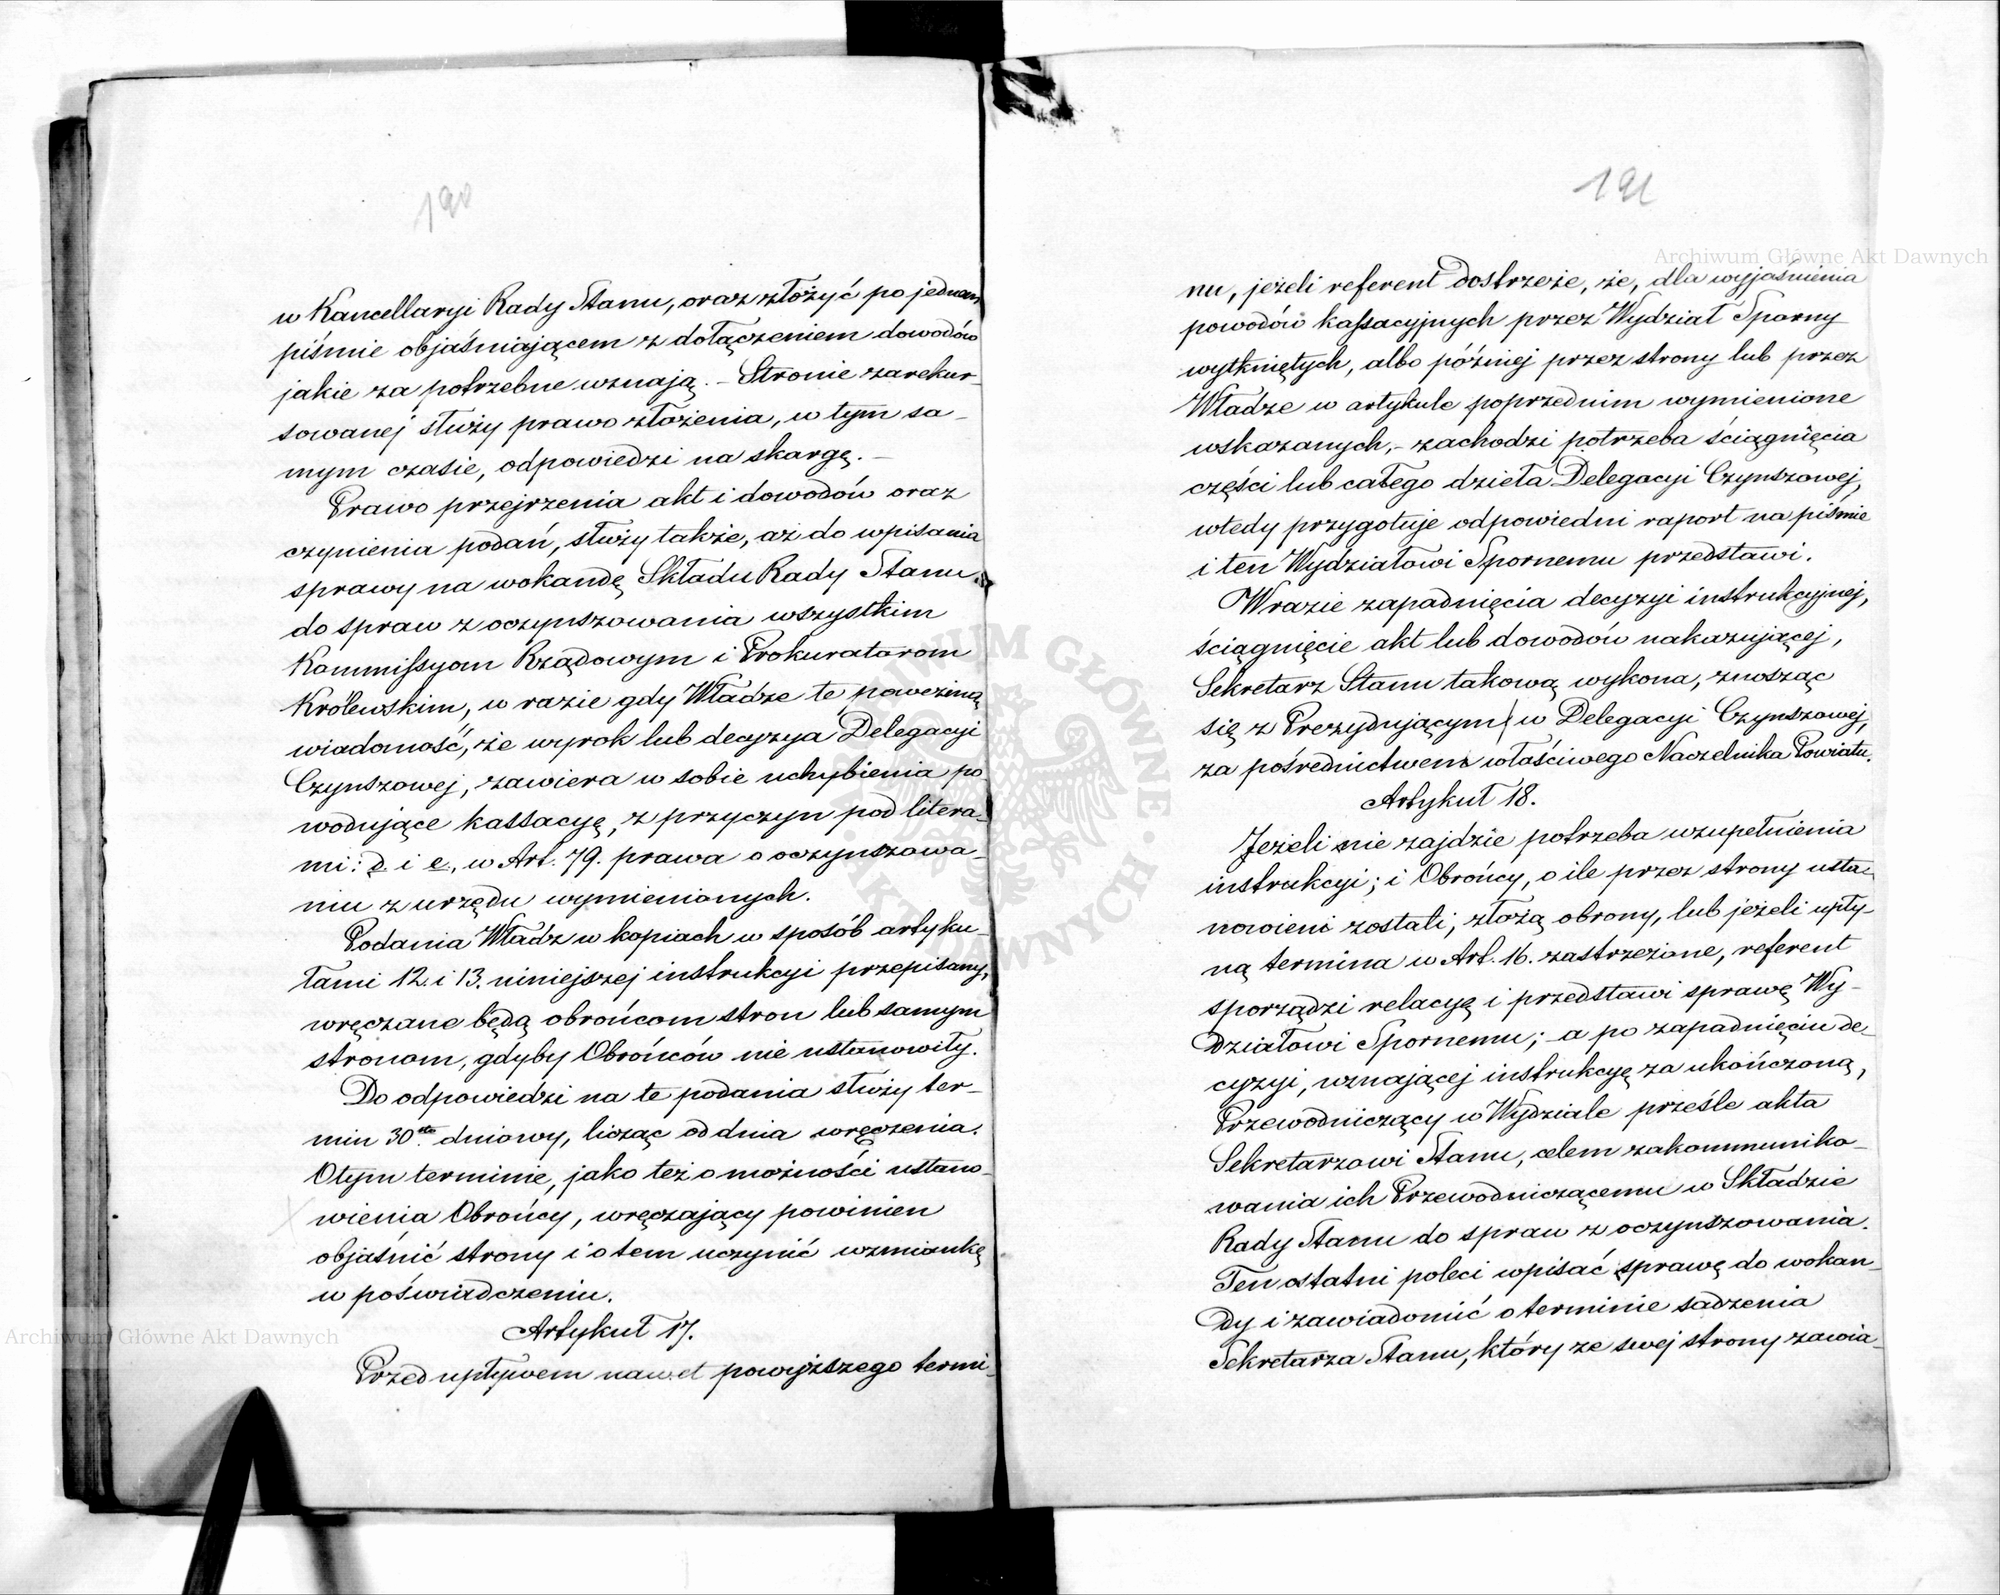 190
w Kancellaryi Rady Stanu, oraz złożyć po jednem
piśmie objaśniającem z dołączeniem dowodów
jakie za potrzebne uznają. – Stronie zarekur-
sowanej służy prawo złożenia, w tym sa-
mym czasie, odpowiedzi na skargę. –
Prawo przejrzenia akt i dowodów oraz
czynienia podań, służy także, aż do wpisania
sprawy na wokandę Składu Rady Stanu
do spraw z oczynszowania wszystkim
Kommissyom Rządowym i Prokuratorom
Królewskim, w razie gdy Władze te poweźmą
wiadomość, że wyrok lub decyzya Delegacyi
Czynszowej, zawiera w sobie uchybienia po-
wodujące kassacyę, z przyczyn pod litera-
mi: d i e, w Art. 79. prawa o oczynszowa-
niu z urzędu wymienionych.
Podania Władz w kopiach w sposób artyku-
łami 12. i 13. niniejszej instrukcyi przepisany,
wręczane będą obrońcom stron lub samym
stronom, gdyby Obrońców nie ustanowiły.
Do odpowiedzi na te podania służy ter-
min 30sto dniowy, licząc od dnia wręczenia.
O tym terminie, jako też o możności ustano-
wienia Obrońcy, wręczający powinien
objaśnić strony i o tem uczynić wzmiankę
w poświadczeniu.
Artykuł 17.
Przed upływem nawet powyższego termi-
191
nu, jeżeli referent dostrzeże, że, dla wyjaśnienia
powodów kassacyjnych przez Wydział Sporny
wytkniętych, albo później przez strony lub przez
Władze w artykule poprzednim wymienione
wskazanych, – zachodzi potrzeba ściągnięcia
części lub całego dzieła Delegacyi Czynszowej,
wtedy przygotuje odpowiedni raport na piśmie
i ten Wydziałowi Spornemu przedstawi.
W razie zapadnięcia decyzyi instrukcyjnej,
ściągnięcie akt lub dowodów nakazującej,
Sekretarz Stanu takową wykona, znosząc
się z Prezydującym w Delegacyi Czynszowej,
za pośrednictwem właściwego Naczelnika Powiatu.
Artykuł 18.
Jeżeli nie zajdzie potrzeba uzupełnienia
instrukcyi; i Obrońcy, o ile przez strony usta-
nowieni zostali, złożą obrony, lub jeżeli upły-
ną termina w Art. 16. zastrzeżone, referent
sporządzi relacyę i przedstawi sprawę Wy-
działowi Spornemu; – a po zapadnięciu de-
cyzyi, uznającej instrukcyę za ukończoną,
Przewodniczący w Wydziale prześle akta
Sekretarzowi Stanu, celem zakommuniko-
wania ich Przewodniczącemu w Składzie
Rady Stanu do spraw z oczynszowania.
Ten ostatni poleci wpisać sprawę do wokan-
dy i zawiadomić o terminie sądzenia
Sekretarza Stanu, który ze swej strony zawia-
Archiwum Główne Akt Dawnych
Archiwum Główne Akt Dawnych
ARCHIWUM GŁÓWNE · AKT DAWNYCH ·